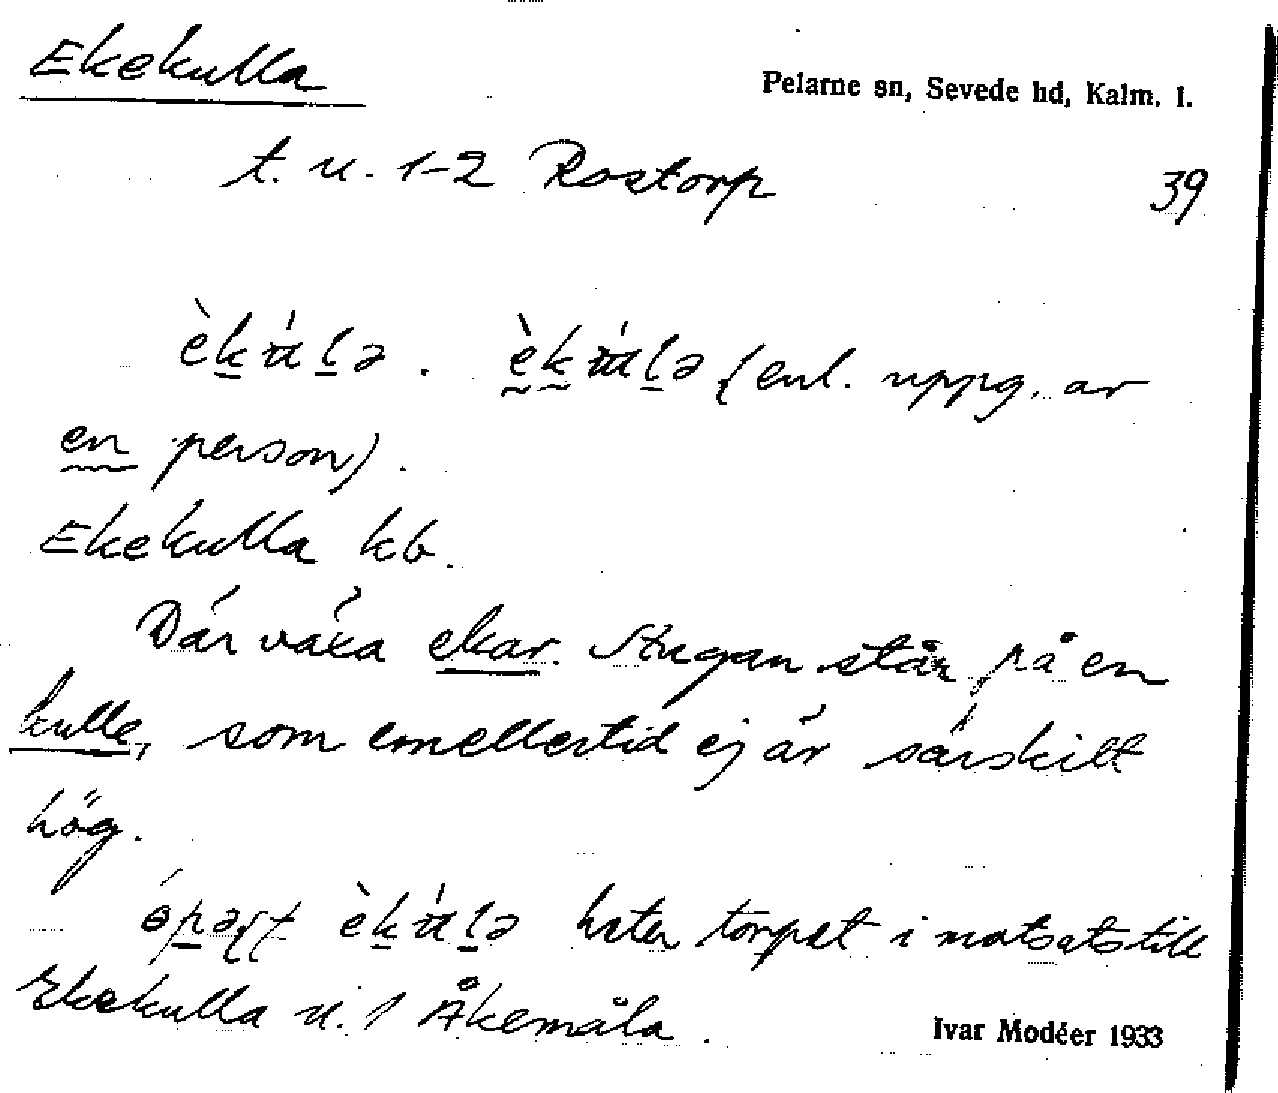 Ekekulla
Pelarne sn, Sevede hd, Kalm. l.
t. u. 1-2 Rostorp 39
(enl. uppg. av
en person).
Ekekulla kb.
Där växa ekar. Stugan står på en
kulle, som emellertid ej är särskilt
hög.
heter torpet i motsats till
Ekekulla u. 1 Åkemåla.
Ivar Modéer 1933